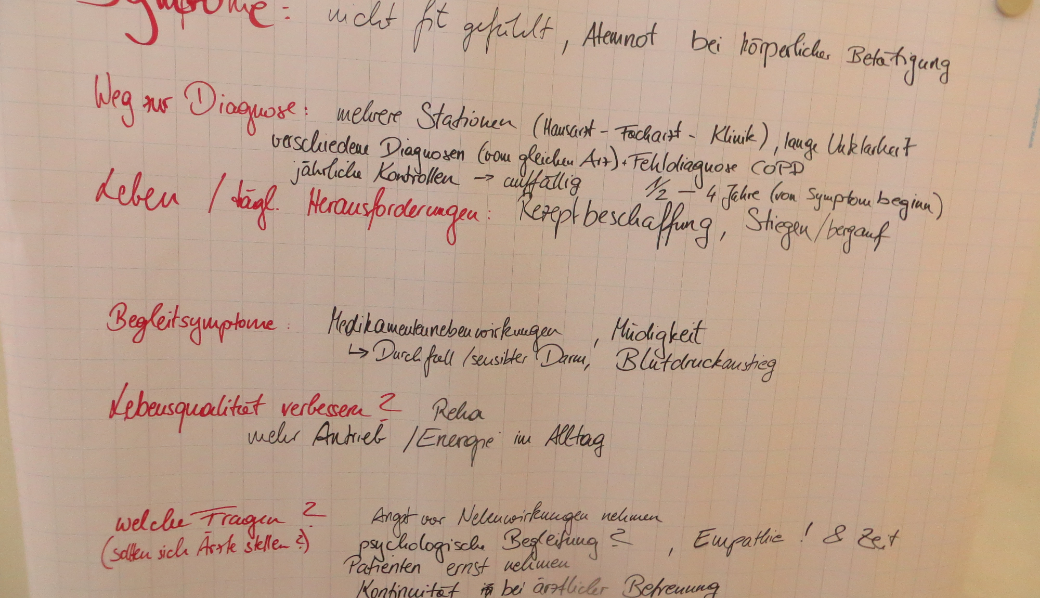 Symptome: nicht fit gefühlt, Atemnot bei körperlicher Betätigung
Weg zur Diagnose: mehrere Stationen (Hausarzt - Facharzt - Klinik), lange Unklarheit
verschiedene Diagnosen (vom gleichen Arzt) + Fehldiagnose COPD
jährliche Kontrollen → auffällig 1/2 - 4 Jahre (von Symptombeginn)
Leben / tägl. Herausforderungen: Rezeptbeschaffung, Stiegen/bergauf
Begleitsymptome: Medikamentennebenwirkungen, Müdigkeit
↳ Durchfall/sensibler Darm, Blutdruckanstieg
Lebensqualität verbessern? Reha
mehr Antrieb /Energie im Alltag
welche Fragen? Angst vor Nebenwirkungen nehmen
(sollten sich Ärzte stellen?) psychologische Begleitung?, Empathie! & Zeit
Patienten ernst nehmen
Kontinuität bei ärztlicher Betreuung